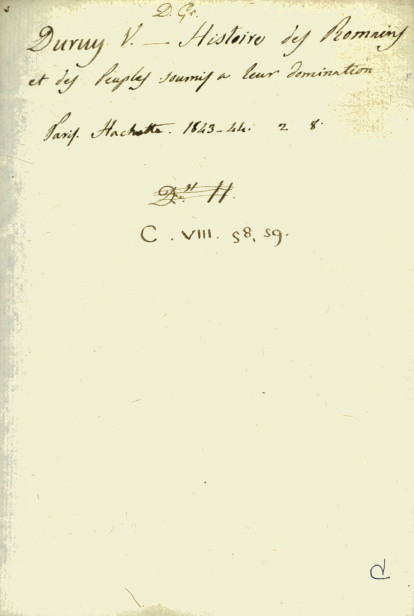 D. G.
Duruy V. — Histoire des Romains
et des Peuples soumis a leur domination
Paris. Hachette. 1843-44. 2 8.
C. VIII. 58, 59.